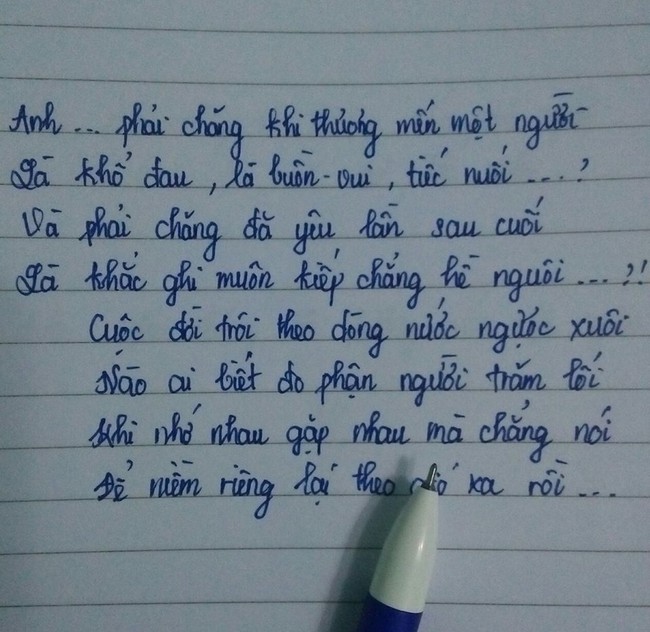 Anh ... phải chăng khi thương mến một người
Là khổ đau, là buồn-vui, tiếc nuối ....?
Và phải chăng đã yêu lần sau cuối
Là khắc ghi muôn kiếp chẳng hề nguôi ...?!!
Cuộc đời trôi theo dòng nước ngược xuôi
Nào ai biết do phận người trăm lối
Khi nhớ nhau gặp nhau mà chẳng nói
Để niềm riêng lại theo gió xa rồi ...